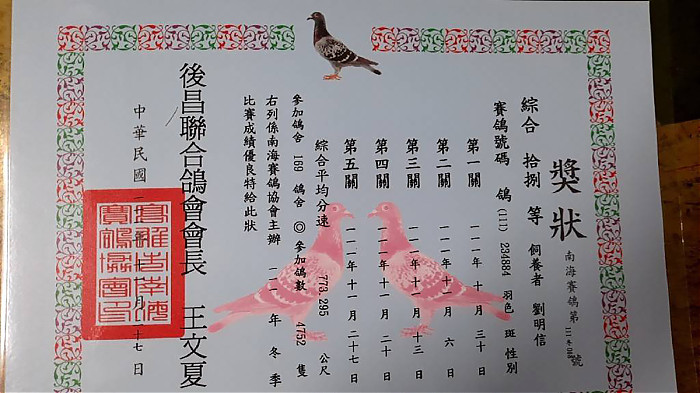 獎狀
南海賽鴿第111冬018號
綜合 拾捌 等 飼養者 劉明信
賽鴿號碼 鴿(111) 234884 羽色 斑 性別
第一關 一一一年十月三十日
第二關 一一一年十一月六日
第三關 一一一年十一月十三日
第四關 一一一年十一月二十日
第五關 一一一年十一月二十七日
綜合平均分速 773.295 公尺
參加鴿舍 169 鴿舍 ◎ 參加鴿數 4752 隻
右列係南海賽鴿協會主辦 一一一年 冬 季
比賽成績優良特給此狀
後昌聯合鴿會會長 王文夏
中華民國一一一年十一月二十七日